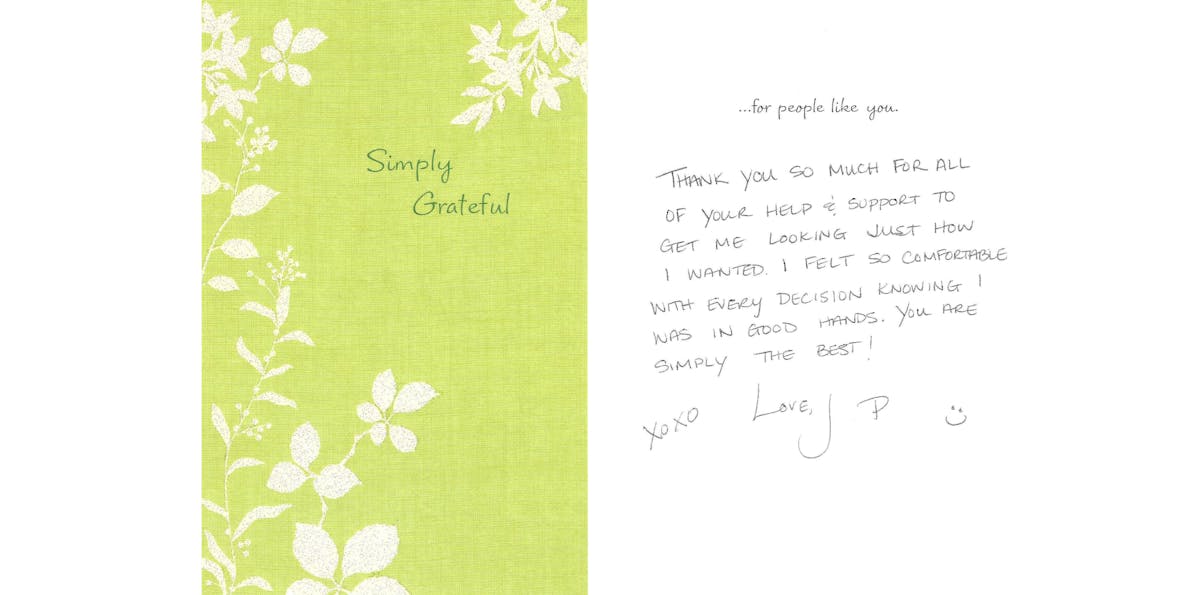 Simply
Grateful
...for people like you.
THANK YOU SO MUCH FOR ALL
OF YOUR HELP & SUPPORT TO
GET ME LOOKING JUST HOW
I WANTED. I FELT SO COMFORTABLE
WITH EVERY DECISION KNOWING I
WAS IN GOOD HANDS. YOU ARE
SIMPLY THE BEST!
XOXO LOVE, J P